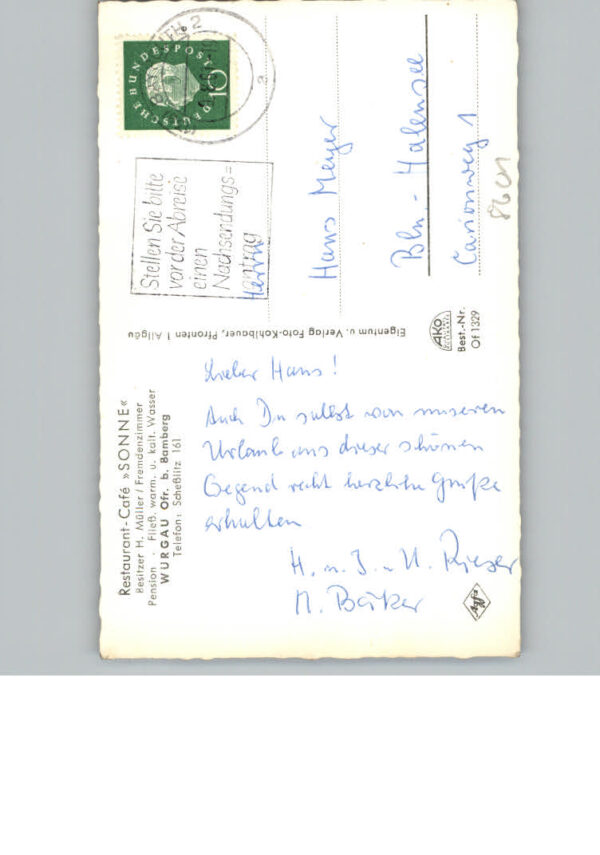 Restaurant-Café »SONNE«
Besitzer H. Müller / Fremdenzimmer
Pension . Fließ. warm. u. kalt. Wasser
WÜRGAU Ofr. b. Bamberg
Telefon: Scheßlitz 161
Lieber Hans!
Auch Du sollst von unserem
Urlaub aus dieser schönen
Gegend recht herzliche Grüße
erhalten
H. u. I. u. U. Rieser
M. Bäcker
Eigentum u. Verlag Foto-Kohlbauer, Pfronten 1 Allgäu
AKO
Best.-Nr.
Of 1329
Agfa
DEUTSCHE BUNDESPOST
10
2
a
Stellen Sie bitte
vor der Abreise
einen
Nachsendungs=
antrag
Herrn
Hans Meyer
Bln.-Halensee
Carionweg 1